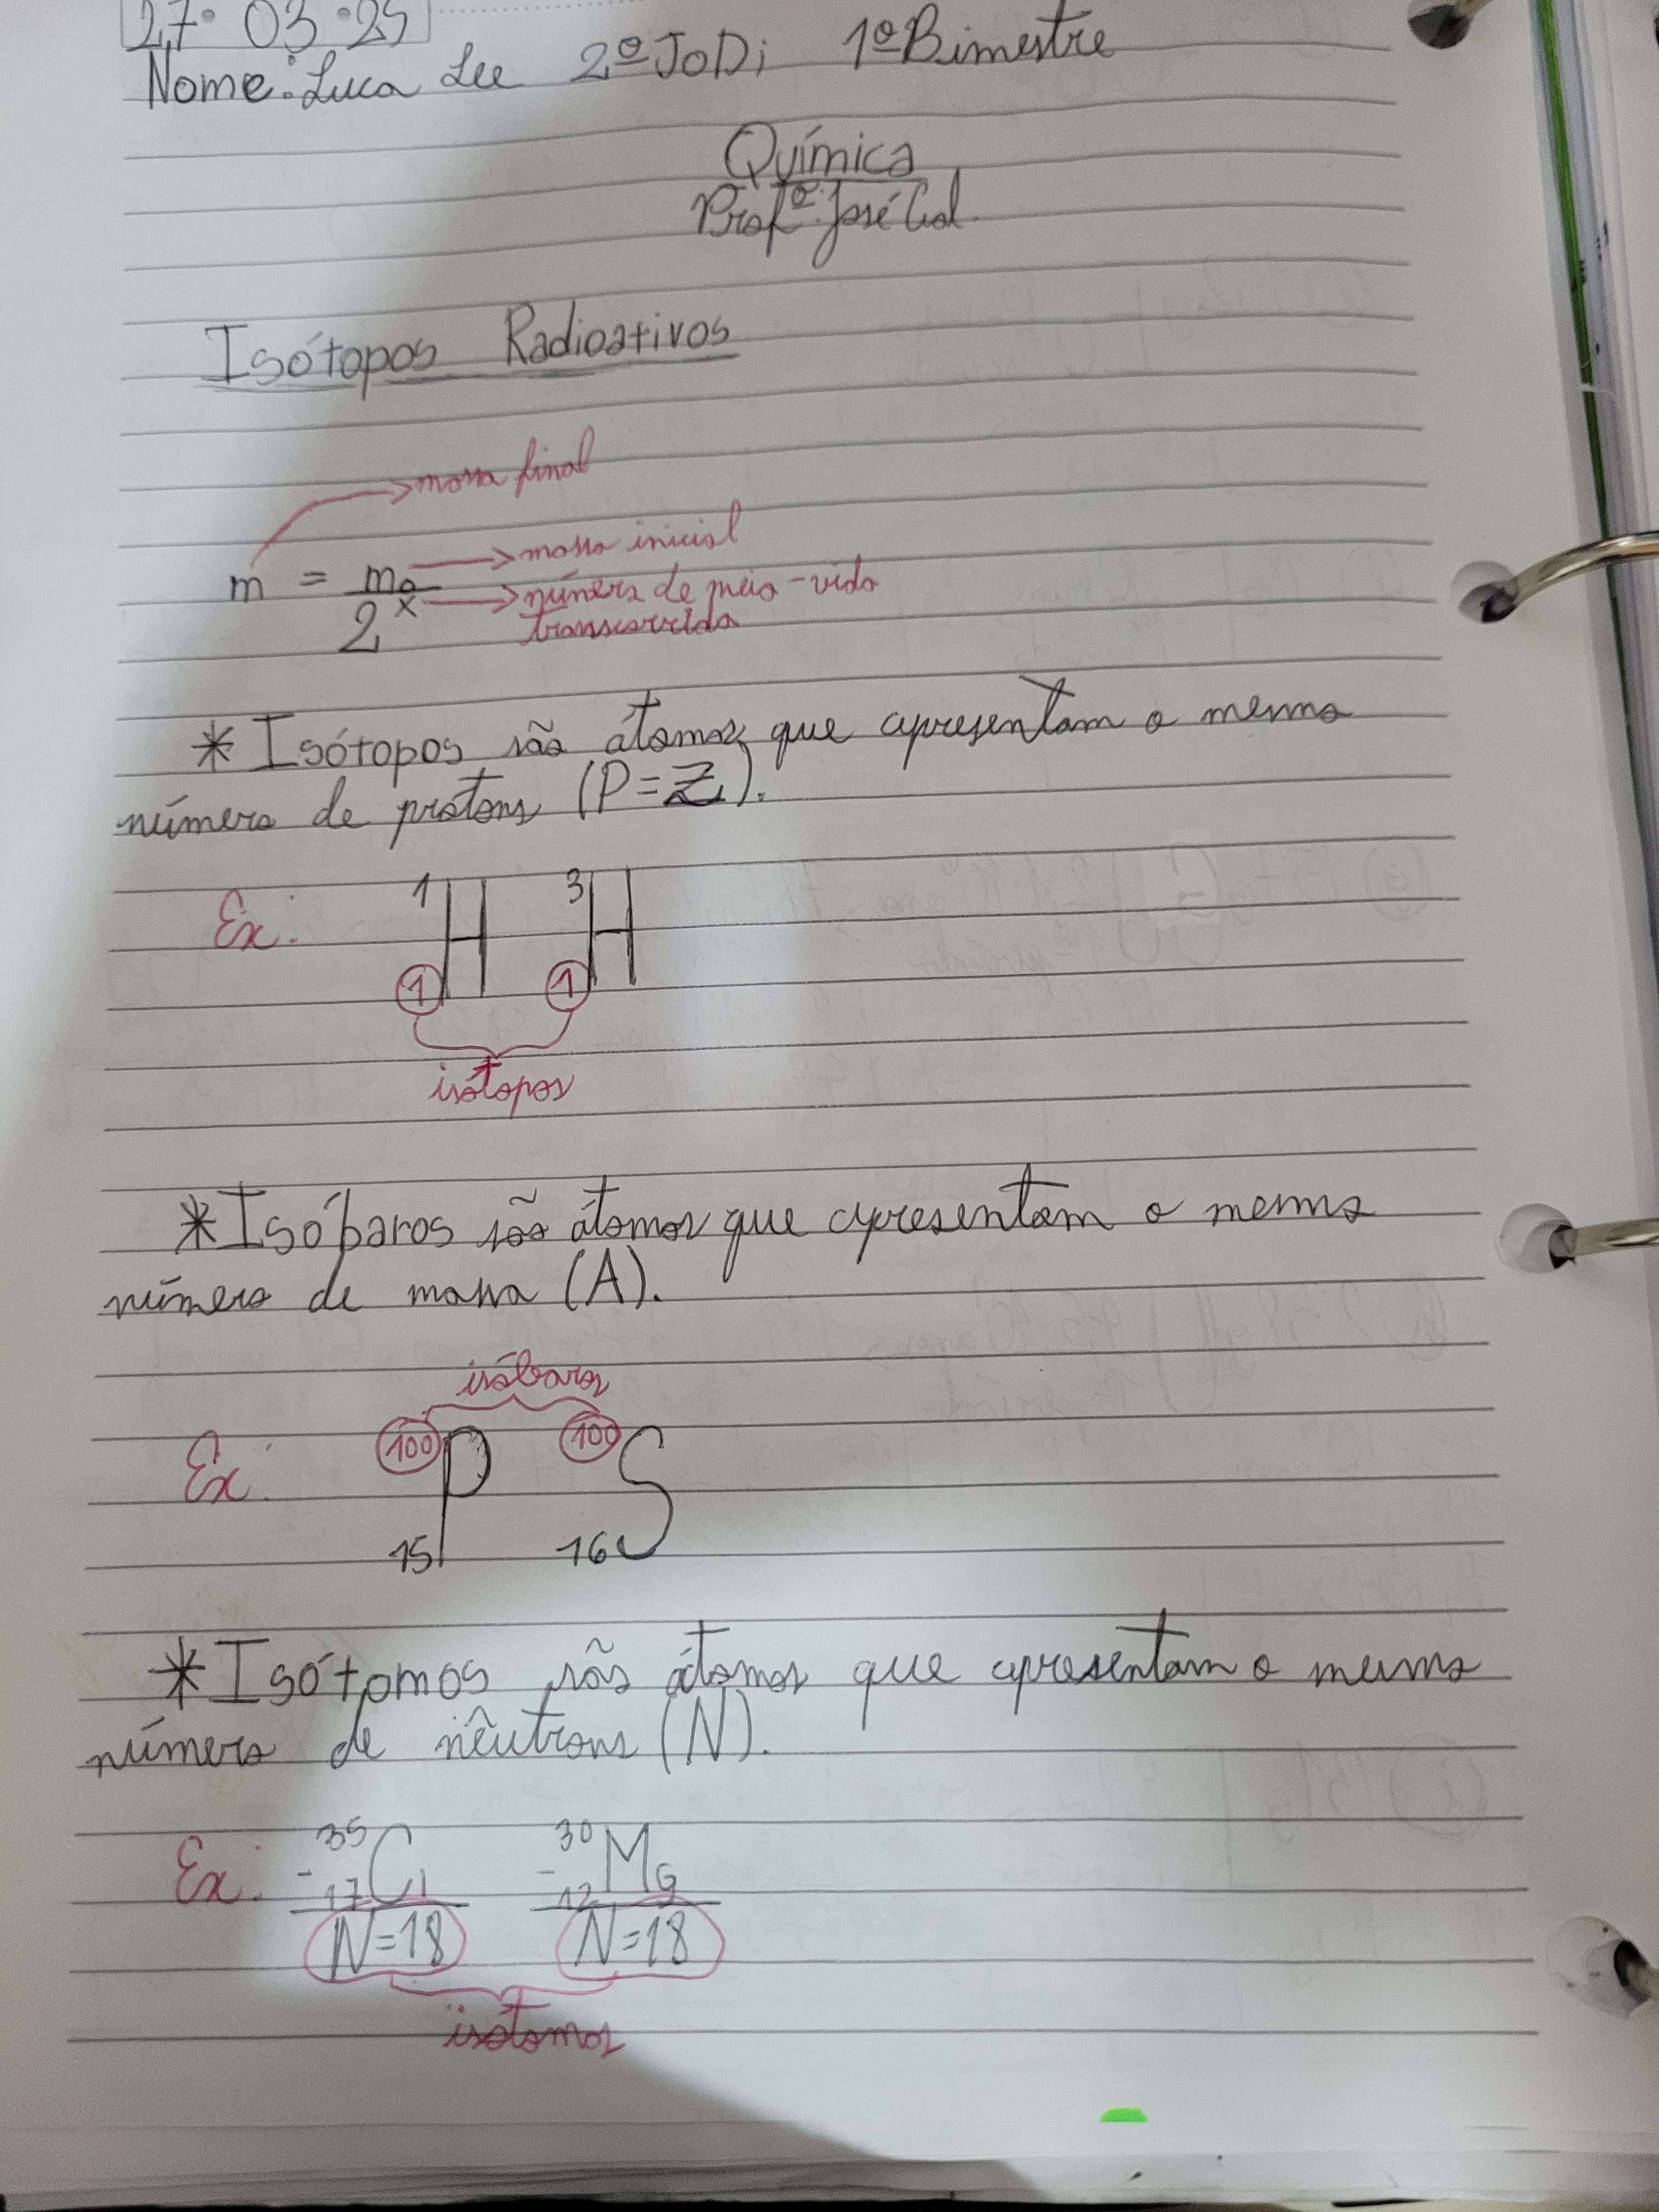 27.03.25
Nome: Luca Lee 2º JoDi 1º Bimestre
Química
Profº. José
Isótopos Radioativos
massa final
m = m₀ massa inicial
2ˣ número de meia-vida
transcorrida
*Isótopos são átomos que apresentam o mesmo
número de prótons (P=Z).
Ex: ¹₁H ³₁H
isótopos
*Isóbaros são átomos que apresentam o mesmo
número de massa (A).
isóbaros
Ex: ¹⁰⁰₁₅P ¹⁰⁰₁₆S
*Isótomos são átomos que apresentam o mesmo
número de nêutrons (N).
Ex: -³⁵₁₇Cl -³⁰₁₂Mg
N=18 N=18
isótomos